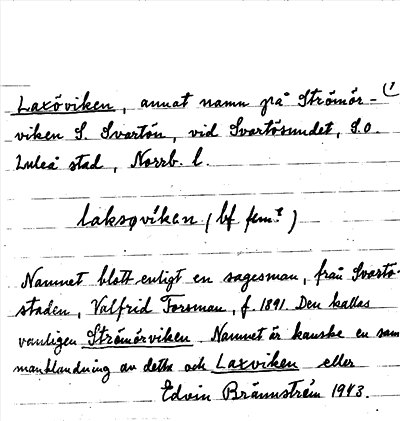 Laxöviken, annat namn på Strömör-
viken S. Svartön, vid Svartösundet, S.O.
Luleå stad, Norrb. l.
laksøvikən (bf fem.?)
Namnet blott enligt en sagesman, från Svartö-
staden, Valfrid Forsman, f. 1891. Den kallas
vanligen Strömörviken. Namnet är kanske en sam
manblandning av detta och Laxviken eller
Edvin Brännström 1943.